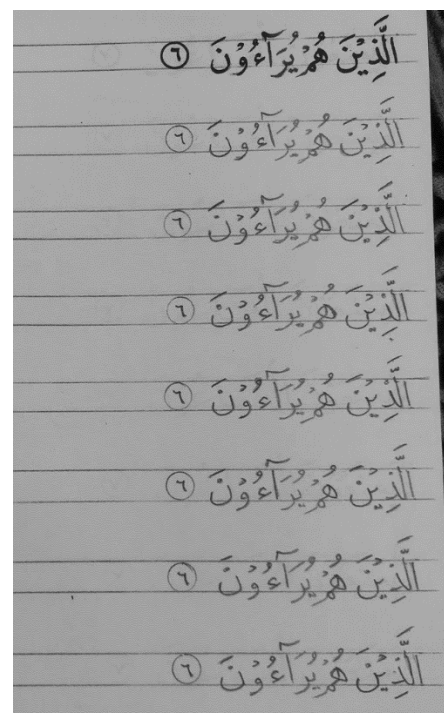 الَّذِيْنَ هُمْ يُرَآءُوْنَ ٦
الَّذِيْنَ هُمْ يُرَآءُوْنَ ٦
الَّذِيْنَ هُمْ يُرَآءُوْنَ ٦
الَّذِيْنَ هُمْ يُرَآءُوْنَ ٦
الَّذِيْنَ هُمْ يُرَآءُوْنَ ٦
الَّذِيْنَ هُمْ يُرَآءُوْنَ ٦
الَّذِيْنَ هُمْ يُرَآءُوْنَ ٦
الَّذِيْنَ هُمْ يُرَآءُوْنَ ٦